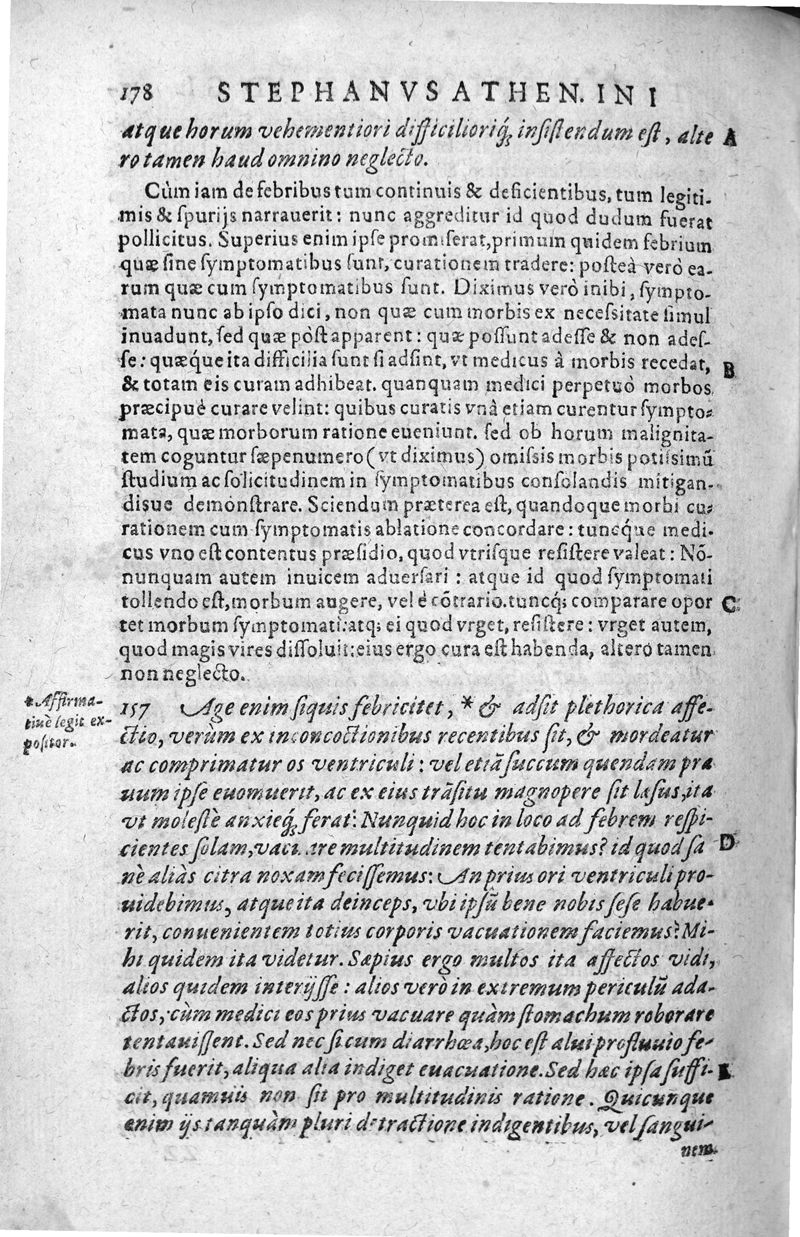 178 STEPHANVS ATHEN. IN I
atque horum vehementiori difficilioriq́; insistendum est, alte A
ro tamen haud omnino neglecto.
Cùm iam de febribus tum continuis & deficientibus, tum legiti-
mis & spurijs narrauerit: nunc aggreditur id quod dudum fuerat
pollicitus. Superius enim ipse promiserat, primum quidem febrium
quæ sine symptomatibus sunt, curationem tradere: posteà verò ea-
rum quæ cum symptomatibus sunt. Diximus verò inibi, sympto-
mata nunc ab ipso dici, non quæ cum morbis ex necessitate simul
inuadunt, sed quæ pòst apparent: quæ possunt adesse & non ades-
se: quæq́ue ita difficilia sunt si adsint, vt medicus à morbis recedat, B
& totam eis curam adhibeat. quanquam medici perpetuò morbos
præcipuè curare velint: quibus curatis vnà etiam curentur sympto-
mata, quæ morborum ratione eueniunt. sed ob horum malignita-
tem coguntur sæpenumero (vt diximus) omissis morbis potissimũ
studium ac solicitudinem in symptomatibus consolandis mitigan-
disue demonstrare. Sciendum præterea est, quandoque morbi cu-
rationem cum symptomatis ablatione concordare: tuncq́ue medi-
cus vno est contentus præsidio, quod vtrisque resistere valeat: Nõ-
nunquam autem inuicem aduersari: atque id quod symptomati
tollendo est, morbum augere, vel è cõtrario. tuncq́; comparare opor C
tet morbum symptomati: atq; ei quod vrget, resistere: vrget autem,
quod magis vires dissoluit: eius ergo cura est habenda, altero tamen
non neglecto.
* Affirma-
tiuè legit ex-
positor.
157 Age enim si quis febricitet, * & adsit plethorica affe-
ctio, verùm ex inconcoctionibus recentibus sit, & mordeatur
ac comprimatur os ventriculi: vel etiã succum quendam pra
uum ipse euomuerit, ac ex eius trãsitu magnopere sit læsus, ita
vt molestè anxieq́; ferat: Nunquid hoc in loco ad febrem respi-
cientes solam, vacuare multitudinem tentabimus? id quod sa D
nè aliàs citra noxam fecissemus: An prius ori ventriculi pro-
uidebimus, atque ita deinceps, vbi ipsũ bene nobis sese habue-
rit, conuenientem totius corporis vacuationem faciemus? Mi-
hi quidem ita videtur. Sæpius ergo multos ita affectos vidi,
alios quidem interijsse: alios verò in extremum periculũ ada-
ctos, cùm medici eos prius vacuare quàm stomachum roborare
tentauissent. Sed nec si cum diarrhœa, hoc est alui profluuio fe-
bris fuerit, aliqua alia indiget euacuatione. Sed hæc ipsa suffi-
cit, quamuis non sit pro multitudinis ratione. Quicunque
enim ijs tanquàm pluri detractione indigentibus, vel sangui-
nem